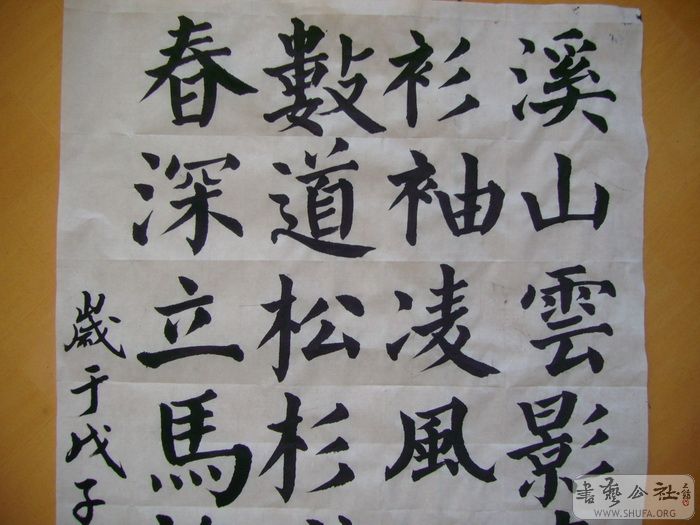 溪山雲影
衫袖凌風
數道松杉
春深立馬
歲于戊子
書藝公社
WWW.SHUFA.ORG